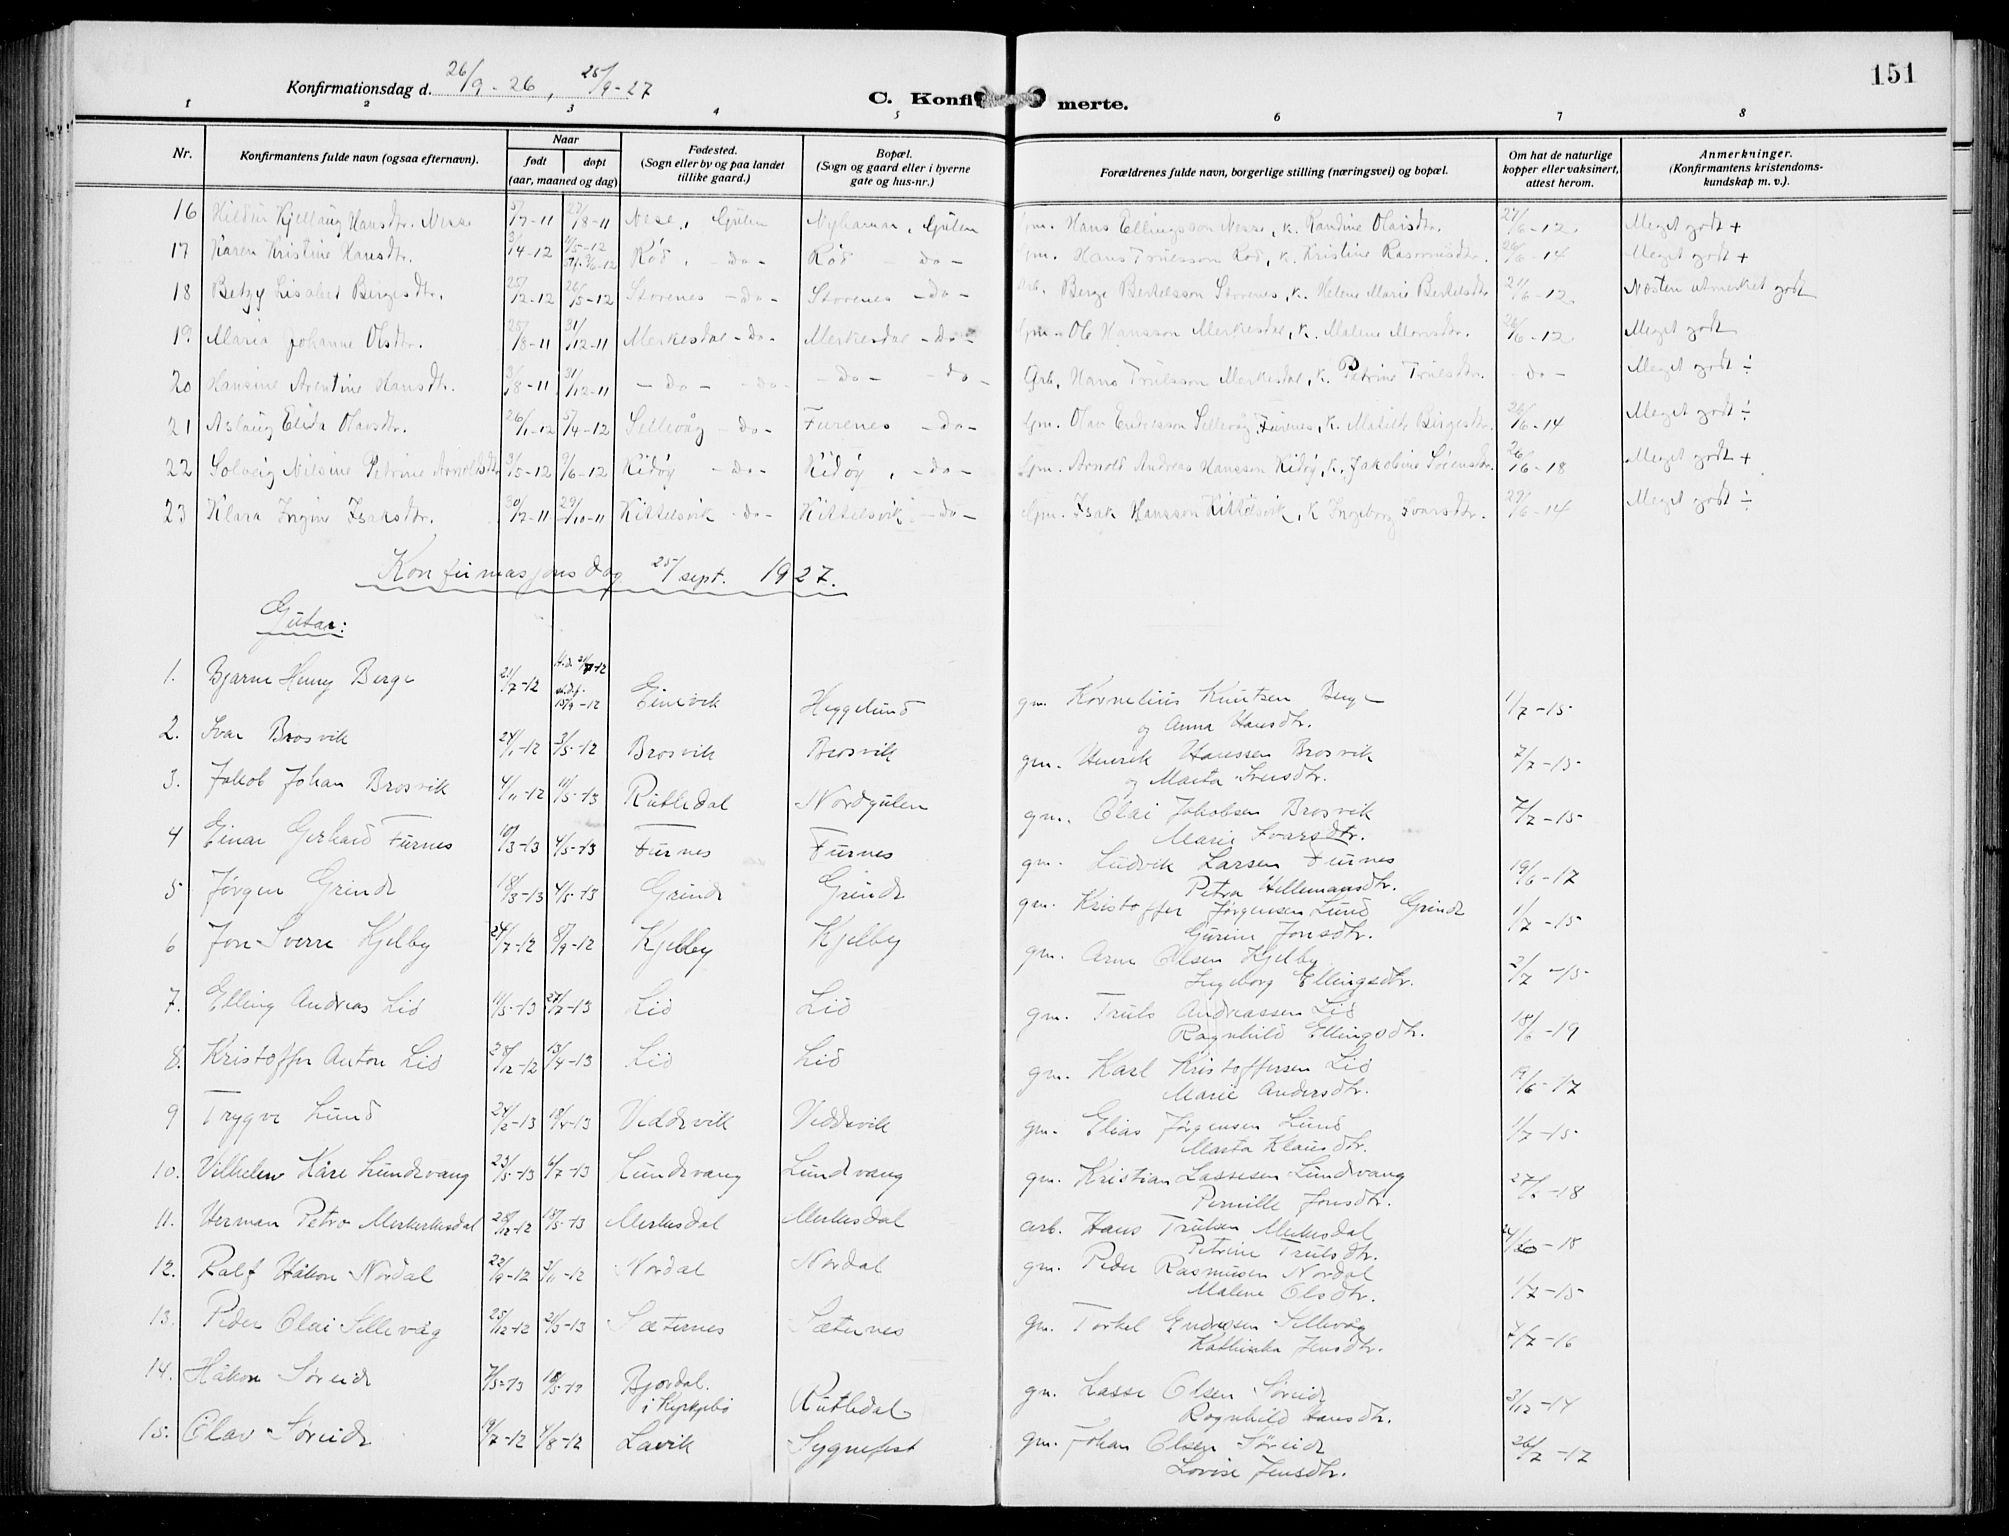 151
Konfirmationsdag d. 26/9-26, 25/9-27
C. Konfirmerte.
1 2 3 4 5 6 7 8
Nr.
Konfirmantens fulde navn (ogsaa efternavn).
Naar
født
døpt
(aar, maaned og dag)
Fødested.
(Sogn eller by og paa landet
tillike gaard.)
Bopæl.
(Sogn og gaard eller i byerne
gate og hus-nr.)
Forældrenes fulde navn, borgerlige stilling (næringsvei) og bopæl.
Om hat de naturlige
kopper eller vaksinert,
attest herom.
Anmerkninger.
(Konfirmantens kristendoms-
kundskap m. v.).
16 Hildur Kjellaug Hansdtr. Nese Nese, Gulen Gulen Gm. Hans Ellingsson Nesse, K. Randine Olaisdtr. 27/6-12 Meget godt +
17 Karen Kristine Hansdtr. Rød, -do- Rød -do- Gm. Hans Trulsson Rød, K. Kristine Rasmusdtr. 26/6-14 Meget godt +
18 Betzy Lisabet Bergesdtr. 25/12-12 26/5-12 Storenes -do- Storenes -do- Arb. Berge Bertelsson Storenes, K. Helene Marie Bertelsdtr. 27/6-12 Næsten utmerket godt
19 Maria Johanne Olsdtr. 25/8-11 31/12-11 Merkesdal -do- Merkesdal -do- Gm. Ole Hansson Merkesdal, K. Malene Monsdtr. 26/6-12 Meget godt
20 Hansine Arentine Hansdtr. 3/8-11 31/12-11 -do- -do- -do- -do- Arb. Hans Trulsson Merkesdal, K. Petrine Trulsdtr. -do- Meget godt ÷
21 Aslaug Elida Olavsdtr. 26/1-12 5/4-12 Sellevåg -do- Furenes -do- Gm. Olav Endresson Sellevåg, Furenes, K. Matilde Birgesdtr. 26/6-14 Meget godt ÷
22 Solveig Nilsine Petrine Arnoldsdtr. 3/5-12 9/6-12 Kidøy -do- Kidøy, -do- Gm. Arnold Andreas Hansson Kidøy, K. Jakobine Sørensdtr. 26/6-18 Meget godt +
23 Klara Ingine Isaksdtr. 30/7-11 29/10-11 Kittelsvik -do- Kittelsvik -do- Gm. Isak Hansson Kittelsvik, K Ingeborg Ivarsdtr. 27/6-14 Meget godt ÷
Konfirmasjonsdag 25/sept. 1927.
Gutar:
1. Bjarne Henry Berge 21/7-12 Einevik Heggelund gm. Kornelius Knutsen Berge 1/7-15
og Anna Hansdtr.
2. Ivar Brosvik 24/1-12 3/5-12 Brosvik Brosvik gm. Henrik Hanssen Brosvik 7/7-15
og Marta Iversdtr.
3. Jakob Johan Brosvik 4/11-12 11/5-13 Rutledal Nordgulen gm. Olai Jakobsen Brosvik 7/7-15
Marie Ivarsdtr.
4 Einar Gerhard Furnes 10/3-13 4/5-13 Furnes Furnes gm. Ludvik Larsen Furnes 19/6-17
Petra Hillemansdtr.
5 Jørgen Grinde 18/3-13 4/5-13 Grinde Grinde gm. Kristoffer Jørgensen Lund Grinde 1/7-15
Gurine Jonsdtr.
6 Jon Sverre Kjelby 24/7-12 8/9-12 Kjelby Kjelby gm. Arne Olsen Kjelby 2/7-15
Ingeborg Ellingsdtr.
7. Elling Andreas Lid 11/5-13 27/7-13 Lid Lid gm. Truls Andreassen Lid 18/6-19
Ragnhild Ellingsdtr.
8. Kristoffer Anton Lid 28/12-12 13/4-13 Lid Lid gm. Karl Kristoffersen Lid 19/6-17
Marie Andersdtr.
9 Trygve Lund 24/2-13 Veddevik Veddevik gm. Elias Jørgensen Lund 1/7-15
Marta Klausdtr.
10. Vilhelm Kåre Lundevang 23/5-13 6/7-13 Lundevang Lundevang gm. Kristian Lassesen Lundvang
Pernille Jonsdtr.
11. Herman Petro Merkerkesdal 28/12-12 Merkesdal Merkesdal arb. Hans Trulsen Merkesdal
Petrine Trulsdtr.
12. Ralf Håkon Nordal 22/9-12 Nordal Nordal gm. Peder Rasmusen Nordal 1/7-15
Malene Olsdtr.
13. Peder Olai Sellevåg 25/12-12 2/3-13 Sæternes Sæternes gm. Torkel Endresen Sellevåg 7/7-16
Kathinka Jensdtr.
14. Håkon Søreide 7/3-13 Bjordal. Rutledal gm. Lasse Olsen Søreide 3/12-14
i Kyrkjebø Ragnhild Hansdtr.
15. Olav Søreide 19/7-12 4/8-12 Lavik Sygnefest gm. Johan Olsen Søreide 26/7-17
Lovise Jensdtr.